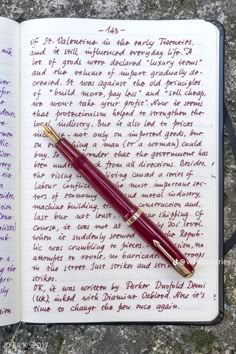 - 143 -
of St. Valentine in the early Twenties,
and it still influenced everyday life. A
lot of goods were declared "luxury items"
and the volume of import gradually de-
creased. It was against the old principles
of "build more, pay less" and "sell cheap,
we won't take your profit". Now it seems
that protectionism helped to strengthen the
local industry, but it also led to price
not only on imported goods, but
on a man (or a woman) could
buy. that the government has
been under from all directions. Besides,
the rising caused a series of
labour conflicts most important sec-
tors of economy metal industry,
machine building, construction and,
last but not least, shipping. Of
course, it was not at 30s' level,
when it suddenly the Repub-
lic was crumbling to pieces. no
attempts to revolt, no barricades troops
in the street. Just strikes and strikes and
strikes.
OK, it was written by Parker Duofold Demi
(UK), inked with Diamine Oxblood. Now it's
time to change the pen once again.